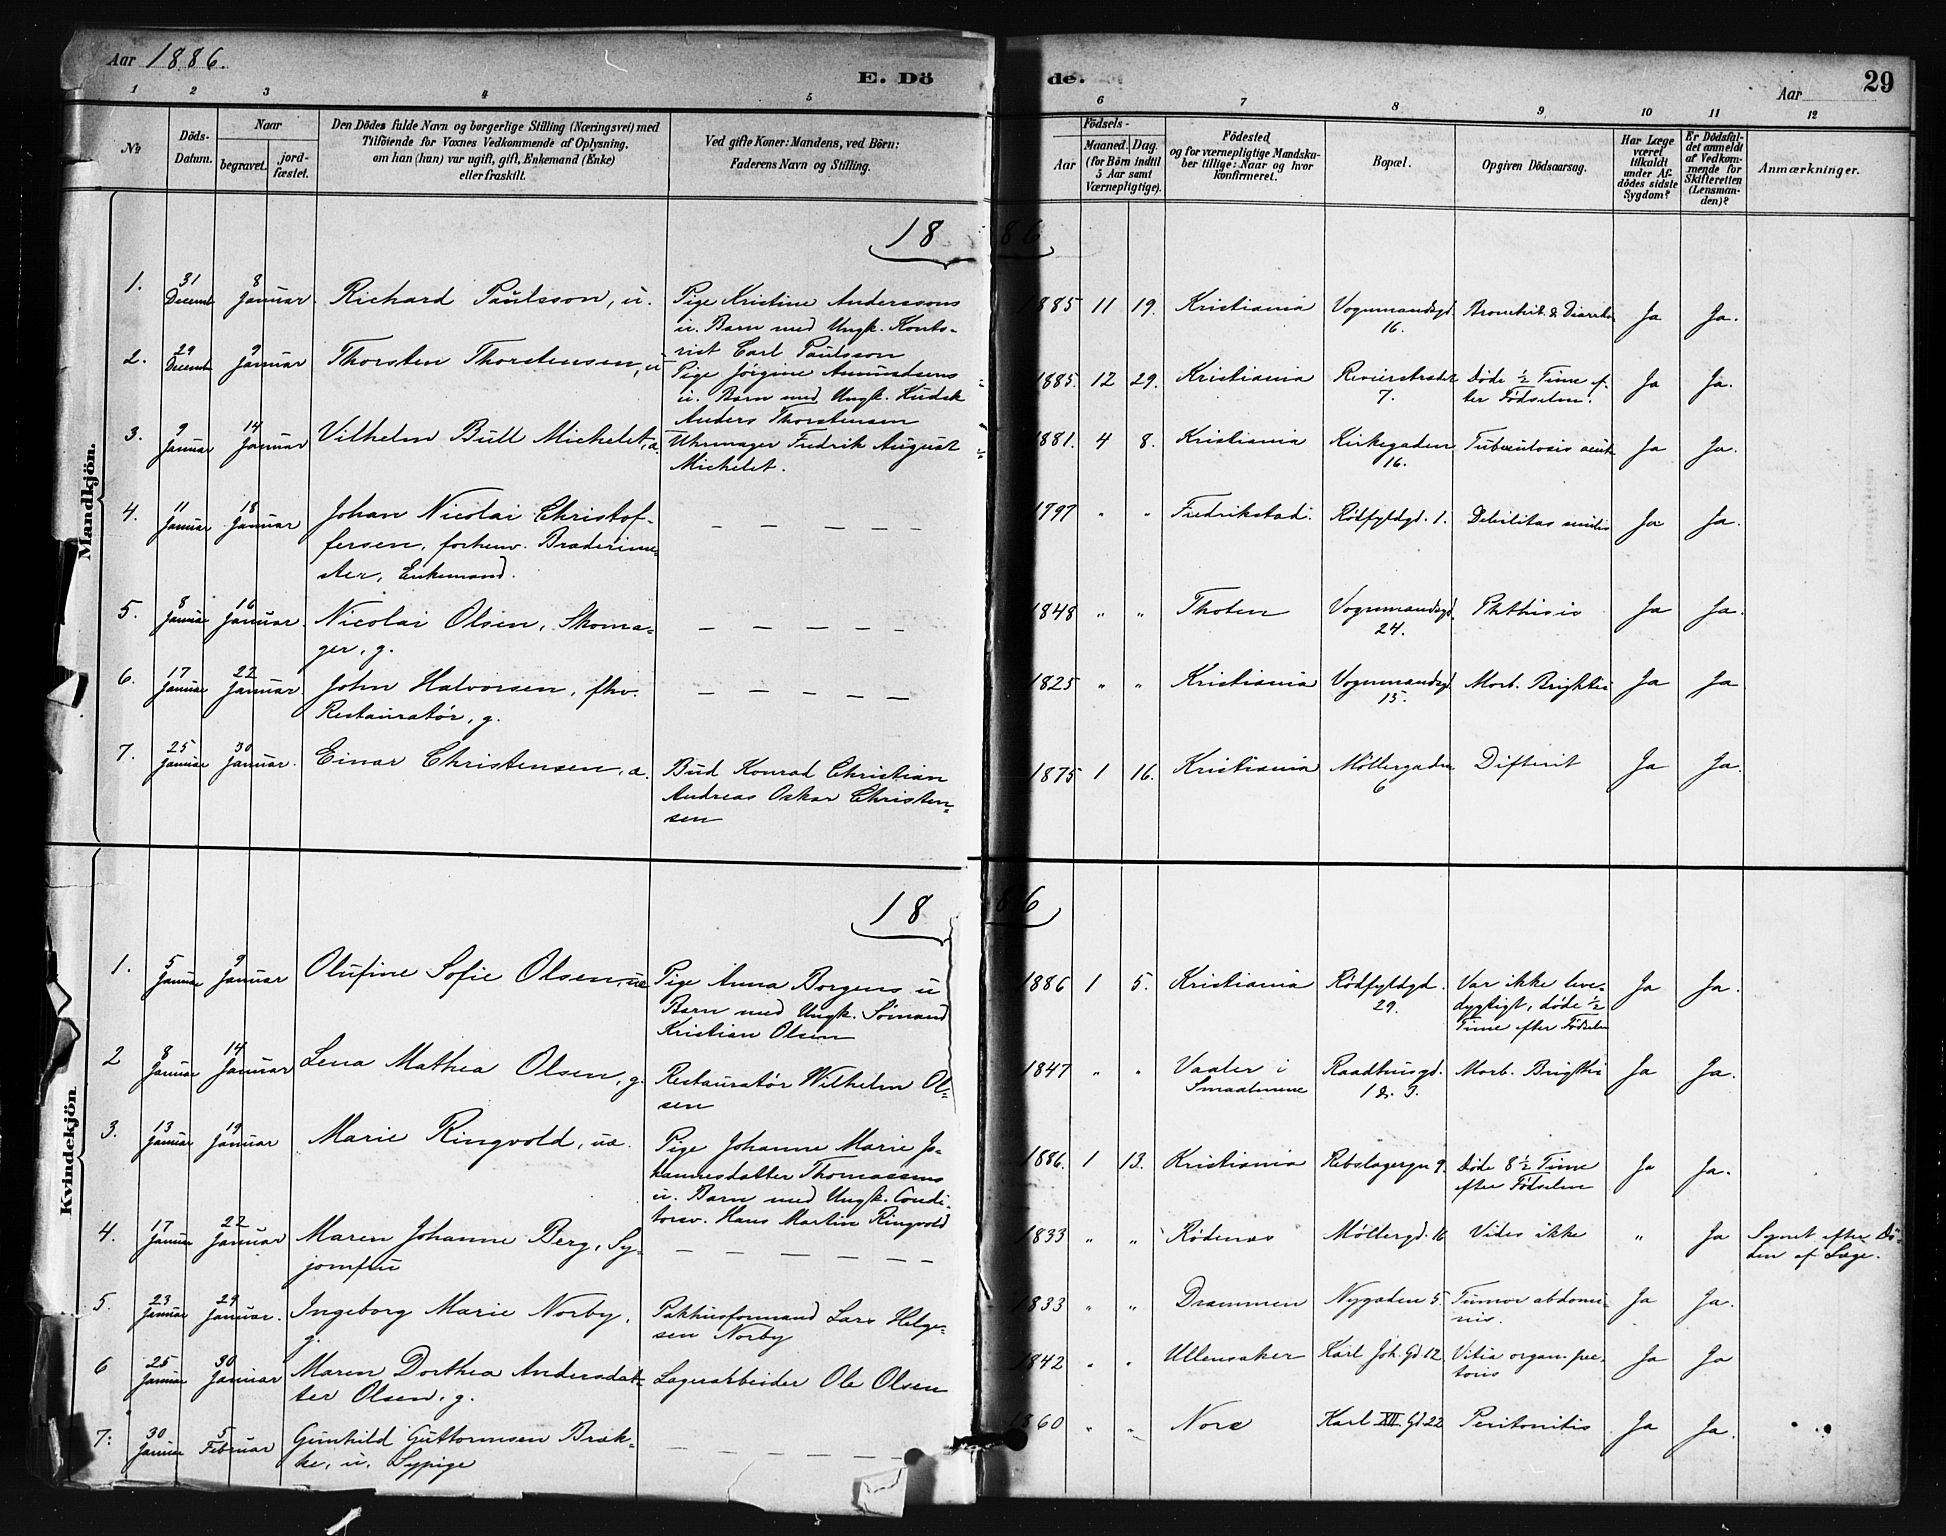 Aar 1886.
E. Dö de.
Aar
29
1 2 3 4 5 6 7 8 9 10 11 12
№
Döds-Datum.
Naar
begravet.
jord-fæstet.
Den Dödes fulde Navn og borgerlige Stilling (Næringsvei) med
Tilföiende for Voxnes Vedkommende af Oplysning,
om han (hun) var ugift, gift, Enkemand (Enke)
eller fraskilt.
Ved gifte Koner: Mandens, ved Börn:
Faderens Navn og Stilling.
Födsels-
Aar
Maaned. Dag.
(for Börn indtil
5 Aar samt
Værnepligtige).
Födested
og for værnepligtige Mandska-
ber tillige: Naar og hvor
konfirmeret.
Bopæl.
Opgiven Dödsaarsag.
Har Læge
været
tilkaldt
under Af-
dödes sidste
Sygdom?
Er Dödsfal-
det anmeldt
af Vedkom-
mende for
Skifteretten
(Lensman-
den)?
Anmærkninger.
Mandkjön.
1886
1. 31 Decemb 8 Januar. Richard Paulsson, u. Pige Kristine Anderssons
u. Barn med Ungk. Konto-
rist Carl Paulsson
1885 11 19. Kristiania Vognmandsgd.
16. Ja Ja.
2. 29 Decemb 9 Januar Thorsten Thorstensen, u Pige Jörgine Amundsens
u. Barn med Ungk. Kudsk
Anders Thorstensen
1885. 12 29. Kristiania Revierstrædet
7. Döde ½ Time ef-
ter Födselen. Ja Ja.
3. 9 Januar 14 Januar Vilhelm Bull Michelet, æ. Uhrmager Fredrik August
Michelet.
1881. 4 8. Kristiania Kirkegaden
16. Tuberculosis acuta Ja Ja.
4. 11 Januar 18 Januar Johan Nicolai Christof-
fersen, forhenv. Braderime-
ster, Enkemand.
— — — — —
1797 " " Fredrikstad. Rödfyldgd. 1. Debilitas senilis Ja Ja.
5. 8 Januar 16 Januar. Nicolai Olsen, Skoma-
ger, g.
— — — — —
1848 " " Thoten Vognmandsgd.
24. Phthisis Ja Ja.
6. 17 Januar 22 Januar John Halvorsen, fhv.
Restauratør, g.
— — — — —
1825 " " Kristiania Vognmandsgd.
15. Morb. Brightii Ja Ja
7. 25 Januar 30 Januar. Einar Christensen, æ. Bud Konrad Christian
Andreas Oskar Christen-
sen
1875 1 16. Kristiania Möllergaden
6 Difterit Ja Ja.
Kvindekjön
1886
1. 5 Januar 9 Januar Olufine Sofie Olsen, uæ Pige Anna Borgens u
Barn med Ungk. Sömand
Kristian Olsen
1886 1 5. Kristiania Rödfyldgd.
29. Var ikke leve-
dygtigt, döde ½
Time efter Födselen Ja Ja.
2 8 Januar 14 Januar Lena Mathea Olsen, g. Restauratør Wilhelm Ol-
sen
1847 " " Vaaler i
Smaalenene Raadhusgd.
1 & 3. Morb. Brigthii Ja Ja.
3. 13 Januar 19 Januar Marie Ringvold, uæ. Pige Johanne Marie Jo-
hannesdatter Thomassens
u. Barn med Ungk. Condi-
torsv. Hans Martin Ringvold
1886. 1 13. Kristiania Rebslagergn 9. Döde 8 ½ Time
efter Födselen Ja Ja.
4. 17 Januar 22 Januar Maren Johanne Berg, Sy-
jomfru
— — — — —
1833 " " Rödenæs Möllergd. 16 Vides ikke " Ja Synet efter Dö-
den af Læge.
5. 23 Januar 29 Januar. Ingeborg Marie Norby,
g. Pakhusformand Lars Helge-
sen Norby
1833 " " Drammen Nygaden 5. Tumor abdomi-
nis. Ja Ja.
6 25 Januar 30 Januar Maren Dorthea Andersdat-
ter Olsen, g. Lagerarbeider Ole Olsen
1842 " " Ullensaker Karl Joh. Gd 12. Vitia organ. pec-
toris Ja Ja
7. 30 Januar 5 Februar Gunhild Guttormsen Brek-
ke, u. Sypige
— — — — —
1860 " " Nore Karl XII Gd 22 Peritonitis Ja Ja.